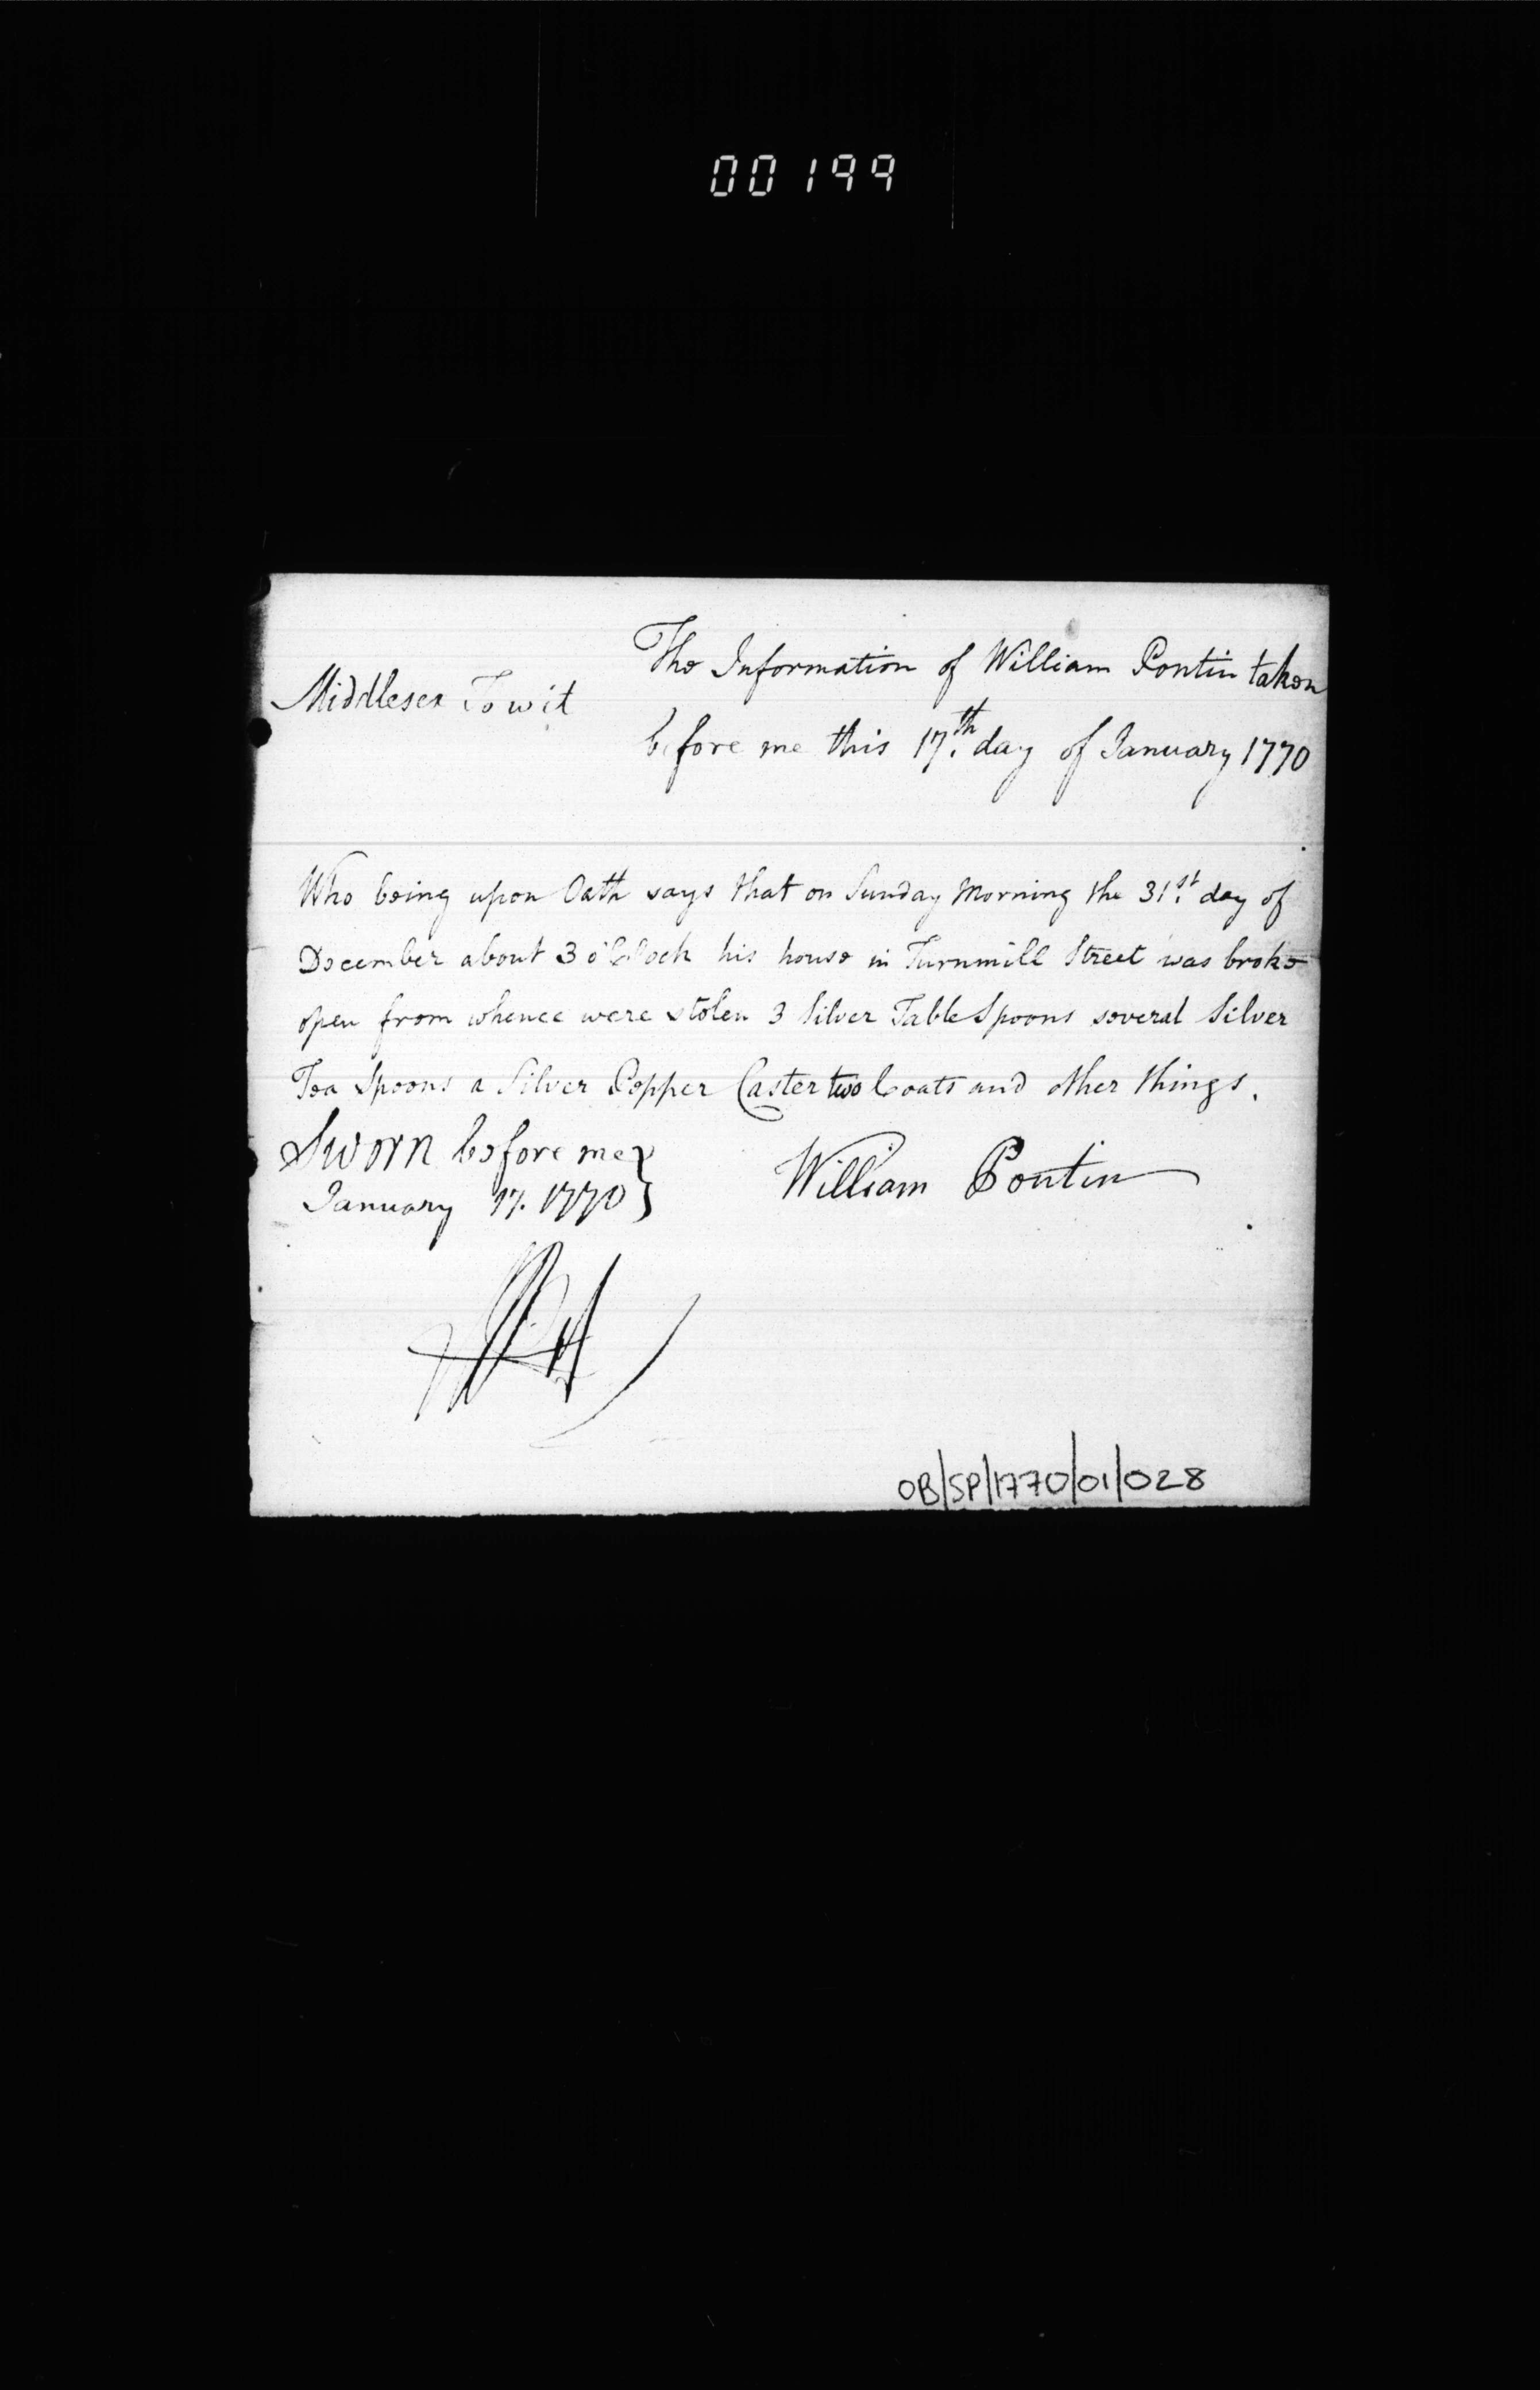 00199
The Information of William Pontin taken
Middlesex To wit
before me this 17.th day of January 1770
Who being upon Oath says that on Sunday Morning the 31.st day of
December about 3 o'Clock his house in Turnmill Street was broke
open from whence were stolen 3 Silver Table Spoons several Silver
Tea Spoons a Silver Pepper Caster two Coats and other things.
Sworn before me
January 17. 1770
William Pontin
OB/SP/1770/01/028